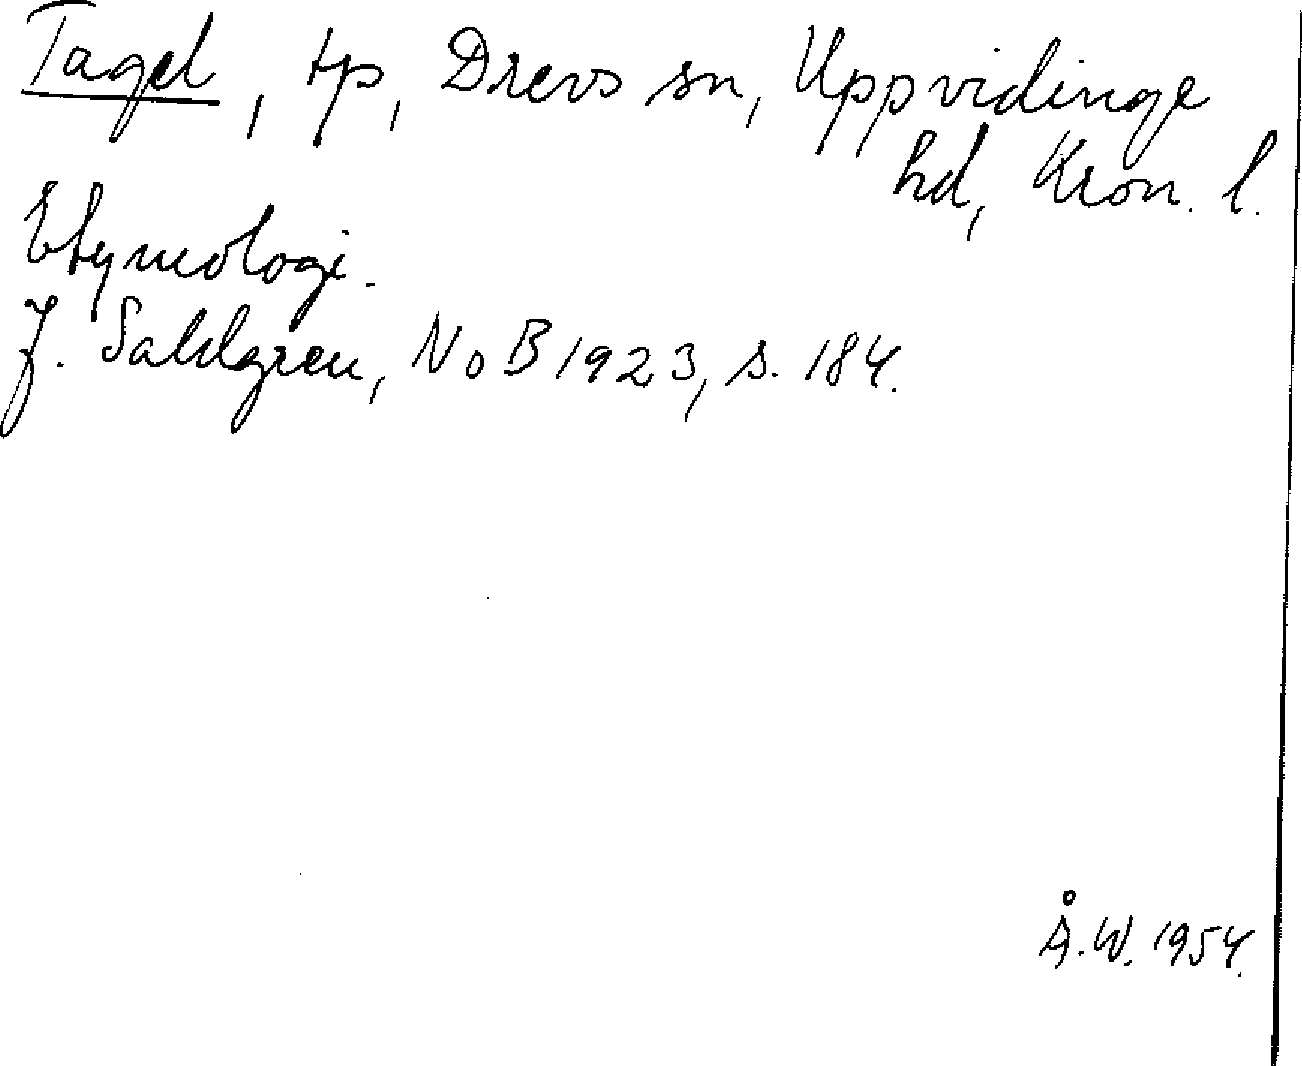 Tagel, tp, Drevs sn, Uppvidinge
hd, Kron. l.
Etymologi.
J. Sahlgren, NoB 1923, s. 184.
Å.W. 1954.